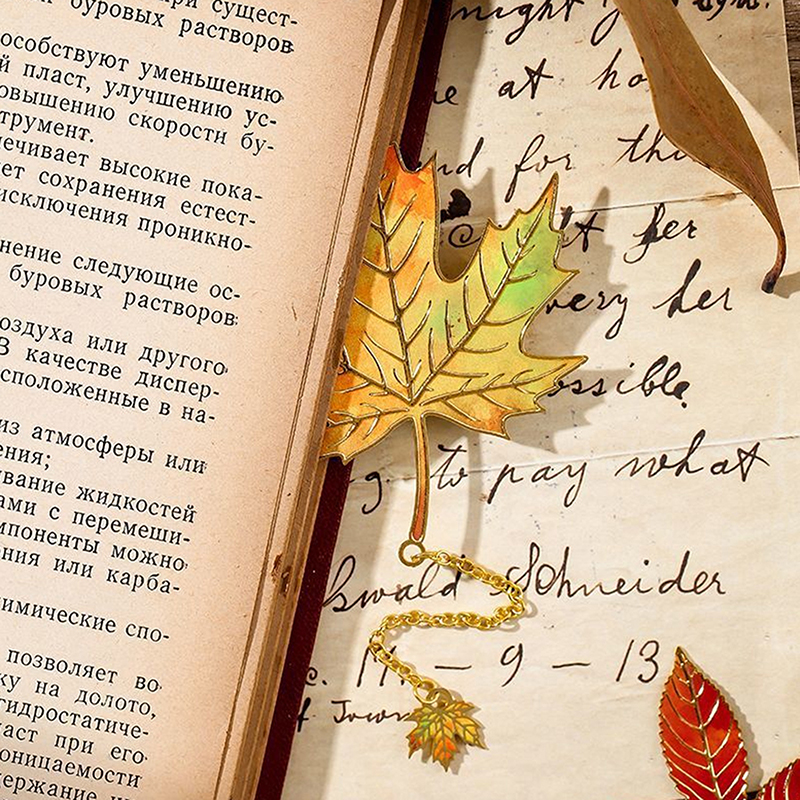 при сущест-
буровых растворов
особствуют уменьшению
й пласт, улучшению ус-
овышению скорости бу-
трумент.
печивает высокие пока-
ет сохранения естест-
исключения проникно-
нение следующие ос-
буровых растворов:
оздуха или другого
В качестве диспер-
сположенные в на-
из атмосферы или
ения;
ивание жидкостей
ами с перемеши-
мпоненты можно
ния или карба-
имические спо-
позволяет во
ку на долото,
гидростатиче-
аст при его
оницаемости
держание
night
at ho
nd for the
't her
very her
ossible
g. to pay what
swald Schneider
11. — 9 — 13